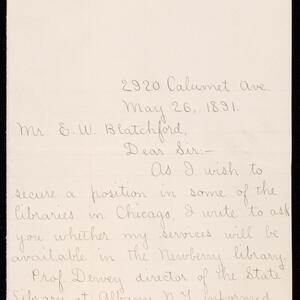 2920 Calumet Ave.
May 26, 1891.
Mr. E. W. Blatchford,
Dear Sir:-
As I wish to
secure a position in some of the
libraries in Chicago, I write to ask
you whether my services will be
available in the Newberry library.
Prof. Dewey director of the State
Library at Albany N.Y. informed